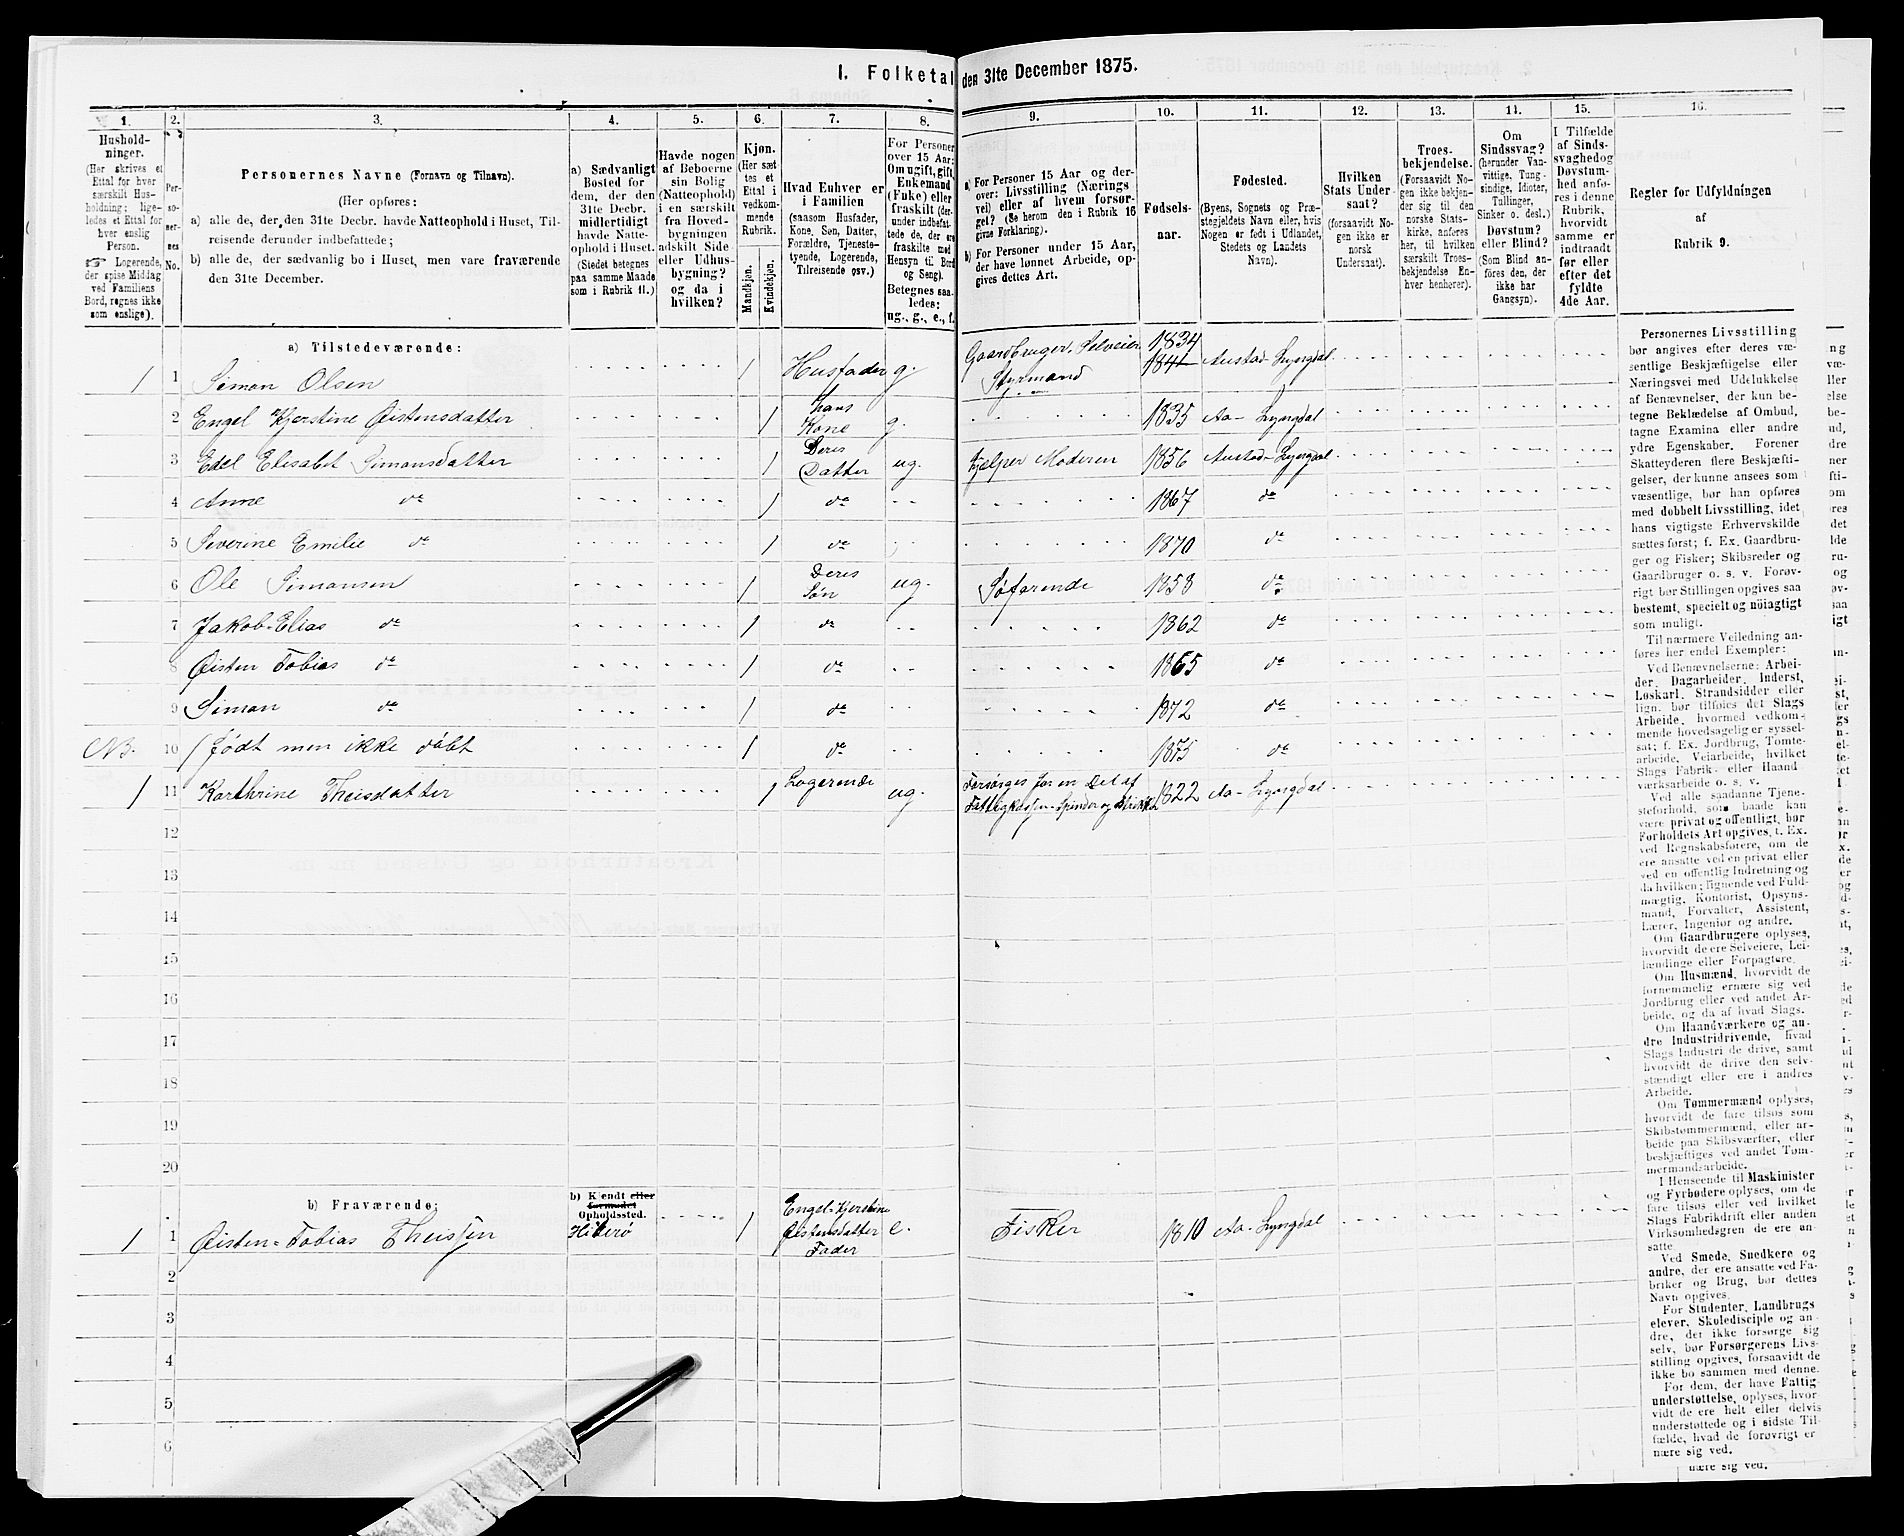 I. Folketal den 31te December 1875.
1. 2. 3. 4. 5. 6. 7. 8. 9. 10. 11. 12. 13. 14. 15. 16.
Hushold-
ninger.
(Her skrives et
Ettal for hver
særskilt Hus-
holdning; lige-
ledes et Ettal for
hver enslig
Person.
☞ Logerende,
der spise Middag
ved Familiens
Bord, regnes ikke
som enslige).
Per-
so-
ner-
nes
No.
Personernes Navne (Fornavn og Tilnavn).
(Her opføres:
a) alle de, der den 31te Decbr. havde Natteophold i Huset, Til-
reisende derunder indbefattede;
b) alle de, der sædvanlig bo i Huset, men vare fraværende
den 31te December.
a) Sædvanligt
Bosted for
dem, der den
31te Decbr.
midlertidigt
havde Natte-
ophold i Huset.
(Stedet betegnes
paa samme Maade
som i Rubrik 11.)
Havde nogen
af Beboerne
sin Bolig
(Natteophold)
i en særskilt
fra Hoved-
bygningen
adskilt Side
eller Udhus-
bygning?
og da i
hvilken?
Kjøn.
(Her sæt-
tes et
Ettal i
vedkom-
mende
Rubrik.
Mandkjøn.
Kvindekjøn.
Hvad Enhver er
i Familien
(saasom Husfader,
Kone, Søn, Datter,
Forældre, Tjeneste-
tyende, Logerende,
Tilreisende osv.)
For Personer
over 15 Aar:
Om ugift, gift,
Enkemand
(Enke) eller
fraskilt (der-
under indbefat-
tede de, der ere
fraskilte med
Hensyn til Bord
og Seng).
Betegnes saa-
ledes:
ug., g., e., f.
a) For Personer 15 Aar og der-
over: Livsstilling (Nærings
vei) eller af hvem forsør-
get? (Se herom den i Rubrik 16
givne Forklaring).
b) For Personer under 15 Aar,
der have lønnet Arbeide, op-
gives dettes Art.
Fødsels-
aar.
Fødested.
(Byens, Sognets og Præ-
stegjeldets Navn eller, hvis
Nogen er født i Udlandet,
Stedets og Landets
Navn).
Hvilken
Stats Under-
saat?
(forsaavidt No-
gen ikke er
norsk
Undersaat).
Troes-
bekjendelse.
(Forsaavidt No-
gen ikke bekjen-
der sig til den
norske Stats-
kirke, anføres
her, til hvilken
særskilt Troes-
bekjendelse En-
hver henhører).
Om
Sindssvag?
(herunder Van-
vittige, Tung-
sindige, Idioter,
Tullinger,
Sinker o. desl.)
Døvstum?
eller Blind?
(Som Blind an-
føres den, der
ikke har
Gangsyn).
I Tilfælde
af Sinds-
svaghed og
Døvstum-
hed anfø-
res i denne
Rubrik,
hvorvidt
samme er
indtraadt
før eller
efter det
fyldte
4de Aar.
Regler for Udfyldningen
af
Rubrik 9.
a) Tilstedeværende:
1 1 Simon Olsen 1 Husfader g. Gaardbruger. Selveier. Styrmand 1834 1841 Austad-Lyngdal
2 Engel Kjerstine Øistensdatter 1 hans Kone g. 1835 Aa- Lyngdal
3 Edel Elisabet Simonsdatter 1 Deres Datter ug. hjælper Moderen 1856 Austad-Lyngdal
4 Anne do 1 do 1867 do
5 Severine Emilie do 1 do 1870 do
6 Ole Simonsen 1 Deres Søn ug. Søfarende 1858 do
7 Jakob-Elias do 1 do 1862 do
8 Øisten Tobias do 1 do 1865 do
9 Simon do 1 do 1872 do
NB. 10 / født men ikke døbt 1 do 1875 do
1 11 Karthrine Theisdatter 1 Logerende ug. Forsørges for en Del af Fattigkassen-Spinder og 1822 Aa-Lyngdal
12
13
14
15
16
17
18
19
20
b) Fraværende:
b) Kjendt eller
formodet
Opholdssted.
1 1 Øisten-Tobias Theissen Hiterø 1 Engel-Kjerstine Øistensdatter Fader e. Fisker 1810 Aa-Lyngdal
2
3
4
5
6
Personernes Livsstilling
bør angives efter deres væ-
sentlige Beskjæftigelse eller
Næringsvei med Udelukkelse
af Benævnelser, der kun be-
tegne Beklædelse af Ombud,
tagne Examina eller andre
ydre Egenskaber. Forener
Skatteyderen flere Beskjæfti-
gelser, der kunne ansees som
væsentlige, bør han opføres
med dobbelt Livsstilling, idet
hans vigtigste Erhvervskilde
sættes først; f. Ex. Gaardbru-
ger og Fisker; Skibsreder og
Gaardbruger o. s. v. Forøv-
rigt bør Stillingen opgives saa
bestemt, specielt og nöiagtigt
som muligt.
Til nærmere Veiledning an-
føres her endel Exempler:
Ved Benævnelserne: Arbei-
der, Dagarbeider, Inderst,
Løskarl, Strandsidder eller
lign. bør tilføies det Slags
Arbeide, hvormed vedkom-
mende hovedsagelig er syssel-
sat; f. Ex. Jordbrug, Tomte-
arbeide, Veiarbeide, hvilket
Slags Fabrik- eller Haand
værksarbeide o. s. v.
Ved alle saadanne Tjene-
steforhold, som baade kan
være privat og offentligt, bør
Forholdets Art opgives, t. Ex.
ved Regnskabsførere, om de
ere ansatte ved en privat eller
ved en offentlig Indretning og
da hvilken; lignende ved Fuld-
mægtig, Kontorist, Opsyns-
mand, Forvalter, Assistent,
Lærer, Ingeniør og andre.
Om Gaardbrugere oplyses,
hvorvidt de ere Selveiere, Lei-
lændinge eller Forpagtere.
Om Husmænd, hvorvidt de
fornemmelig ernære sig ved
Jordbrug eller ved andet Ar-
beide, og da af hvad Slags.
Om Haandværkere og an-
dre Industridrivende, hvad
Slags Industri de drive, samt
hvorvidt de drive den selv-
stændigt eller ere i andres
Arbeide.
Om Tømmermænd oplyses,
hvorvidt de fare tilsøs som
Skibstømmermænd, eller ar-
beide paa Skibsværfter, eller
beskjæftiges ved andet Tøm-
mermandsarbeide.
I Henseende til Maskinister
og Fyrbødere oplyses, om de
fare tilsøs eller ved hvilket
Slags Fabrikdrift eller anden
Virksomhedsgren de ere an-
satte
Ved Smede, Snedkere og
andre, der ere ansatte ved Fa-
briker og Brug, bør dettes
Navn opgives.
For Studenter, Landbrugs
elever, Skoledisciple og an-
dre, der ikke forsørge sig
selv, bør Forsørgerens Livs-
stilling opgives, forsaavidt de
ikke bo sammen med denne.
For dem, der have Fattig-
understøttelse, oplyses, hvor-
vidt de ere helt eller delvis
understøttede og i sidste Til-
fælde, hvad de forøvrigt er
nære sig ved.
nære sig ved.